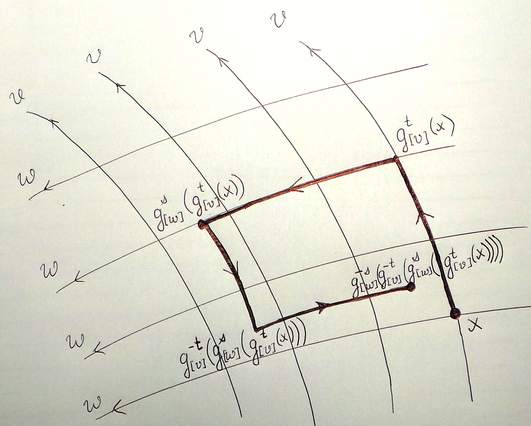 v
v
v
v
w
w
w
w
g^t_[v](x)
g^s_[w](g^t_[v](x))
g^-s_[w]g^-t_[v](g^s_[w](g^t_[v](x))))
x
g^-t_[v](g^s_[w](g^t_[v](x)))